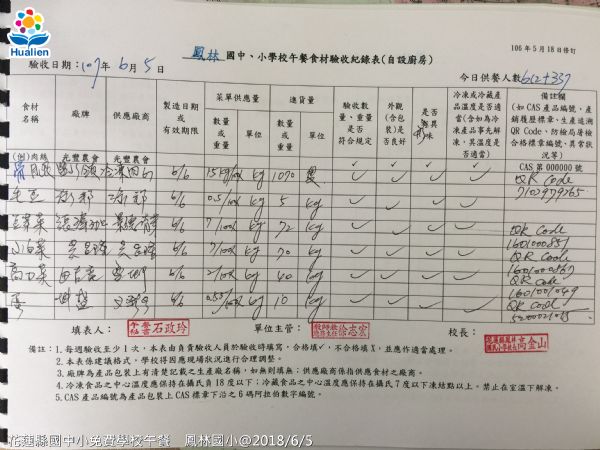 Hualien
106年5月18日修訂
鳳林 國中、小學校午餐食材驗收紀錄表(自設廚房)
驗收日期：107年 6月 5日
今日供餐人數612+337
食材名稱 廠牌 供應廠商 製造日期或有效期限 菜單供應量 進貨量 驗收數量、重量是否符合規定 外觀(含包裝)是否良好 是否無異味 冷凍或冷藏產品溫度是否適當(含如為冷凍產品事先解凍，其溫度是否適當) 備註欄(如CAS產品編號，產銷履歷條碼、生產追溯QR Code、防檢局屠檢合格標章編號、異常狀況等)
數量或重量 單位 數量或重量 單位
(例)肉絲 光豐農會 光豐農會 CAS 第 000000 號
6/6 15kg/100 kg 1070 QR Code
毛豆 6/6 0.5/100 kg 5 kg 7102979765
6/6 7/100 kg 72 kg QR Code
小白菜 6/6 7/100 kg 70 kg 1601000851
QR Code
高麗菜 6/6 2/100 kg 40 kg
QR Code
薑 6/6 kg 10 kg 1601001049
QR Code
填表人： 石政玲 單位主管： 徐志宏 校長： 高金山
備註：1.每週驗收至少1次，本表由負責驗收人員於驗收時填寫，合格填✓，不合格填X，並應作適當處理。
2.本表係建議格式，學校得因應現場狀況進行合理調整。
3.廠牌為產品包裝上有清楚記載之生產廠名稱，如無則填無；供應廠商係指供應食材之廠商。
4.冷凍食品之中心溫度應保持在攝氏負18度以下；冷藏食品之中心溫度應保持在攝氏7度以下凍結點以上。禁止在室溫下解凍。
5.CAS產品編號為產品包裝上CAS標章下沿之6碼阿拉伯數字編號。
花蓮縣國中小免費學校午餐 鳳林國小@2018/6/5